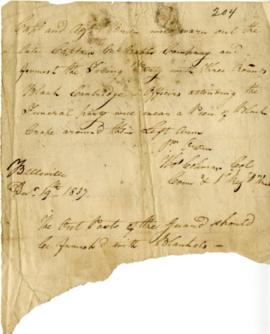 204
Capt and Adjt will warn out the
late Captain Company and
furnish the Firing Party with three Rounds
Blank Cartridge. Officers attending the
Funeral party will wear a Piece of Black
Crape around their Left Arm
Thos Coleman Col
Com 1st Regt
Belleville
Decr 19th 1837
The Out Posts of the Guard should
be furnished with Blankets